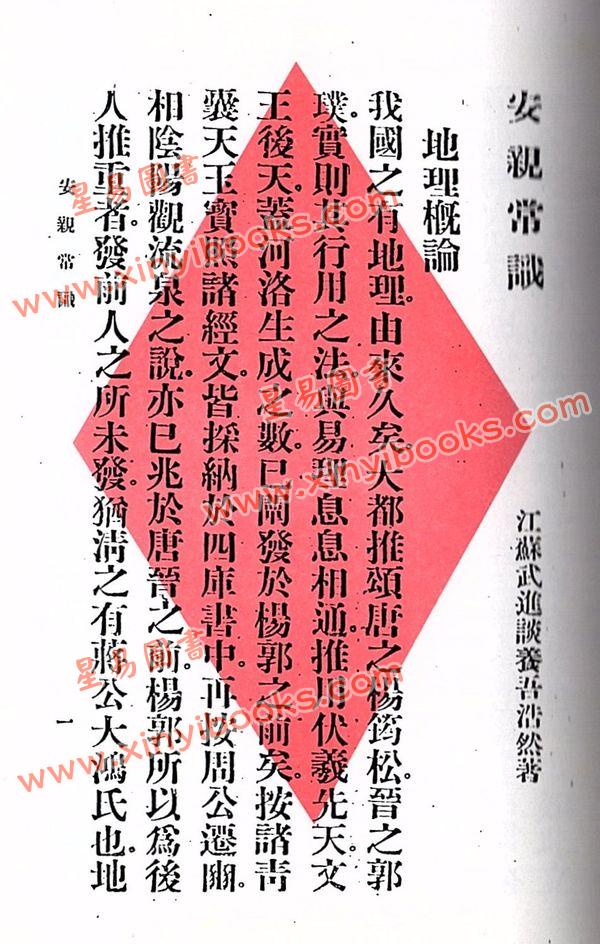 安親常識
江蘇武進談養吾浩然著
地理概論
我國之有地理。由來久矣。大都推頌唐之楊筠松。晉之郭
璞。實則其行用之法。與易理息息相通。推用伏羲先天。文
王後天。蓋河洛生成之數。已闡發於楊郭之前矣。按諸靑
囊天玉寶照諸經文。皆採納於四庫書中。再按周公遷豳。
相陰陽觀流泉之說。亦已兆於唐晉之前。楊郭所以爲後
人推重者。發前人之所未發。猶淸之有蔣公大鴻氏也。地
安親常識
一
星易圖書
www.xinyibooks.com
星易圖書
www.xinyibooks.com
星易圖書
www.xinyibooks.com
星易圖書
www.xinyibooks.com